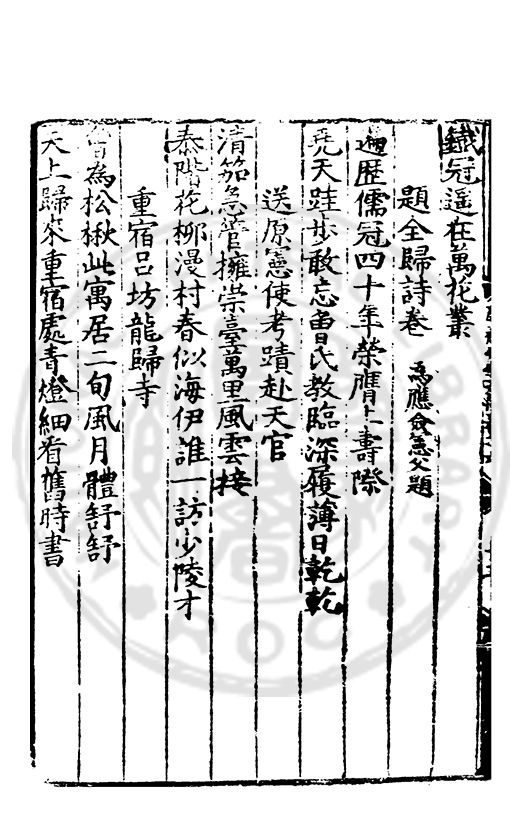 鐵冠遥在萬花叢
題全歸詩卷 為應僉憲父題
遍歷儒冠四十年榮膺上壽際
堯天跬步敢忘曽氏教臨深履薄日乾乾
送原憲使考蹟赴天官
清笳急管擁崇臺萬里風雲接
泰階花柳漫村春似海伊誰一訪少陵才
重宿吕坊龍歸寺
曾為松楸此寓居二旬風月體舒舒
天上歸來重宿處青燈細看舊時書